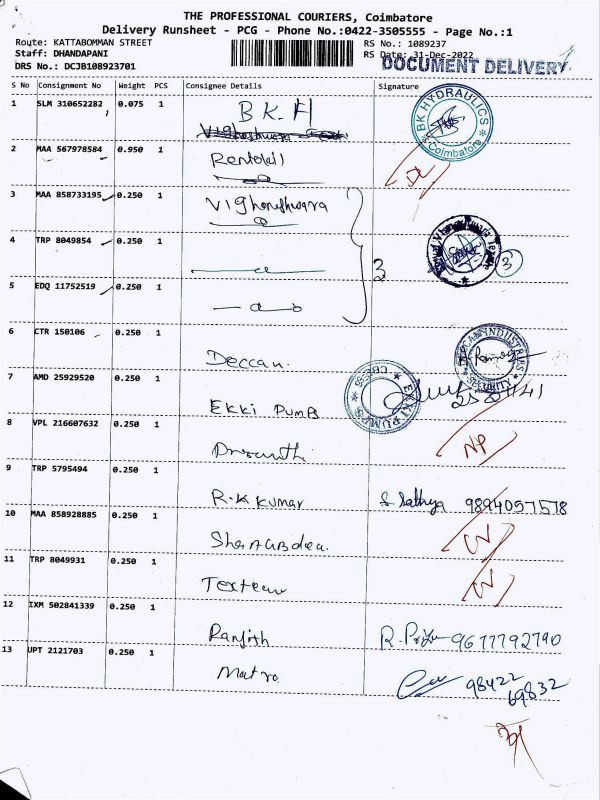 THE PROFESSIONAL COURIERS, Coimbatore
Delivery Runsheet - PCG - Phone No.:0422-3505555 - Page No.:1
Route: KATTABOMMAN STREET
RS No.: 1089237
Staff: DHANDAPANI
RS Date: 31-Dec-2022
DRS No.: DCJB108923701
DOCUMENT DELIVERY
S No Consignment No Weight PCS Consignee Details Signature
1 SLM 310652282 0.075 1 B.K.H
BK HYDRAULICS Coimbatore
2 MAA 567978584 0.950 1 Rentokil
3 MAA 858733195 0.250 1 Vighneshwara
4 TRP 8049854 0.250 1
3
3
5 EDQ 11752519 0.250 1
6 CTR 150106 0.250 1 Deccan.
DECCAN INDUSTRIES SECURITY
7 AMD 25929520 0.250 1 EKKI PUMPS
EKKI PUMPS
8 VPL 216607632 0.250 1 Prasanth
NP
9 TRP 5795494 0.250 1 R.K Kumar S. Sathya 9894057578
10 MAA 858928885 0.250 1
11 TRP 8049931 0.250 1
12 IXM 502841339 0.250 1 Ranjith R. Priya 9677792790
13 UPT 2121703 0.250 1 Matra 98422
69832